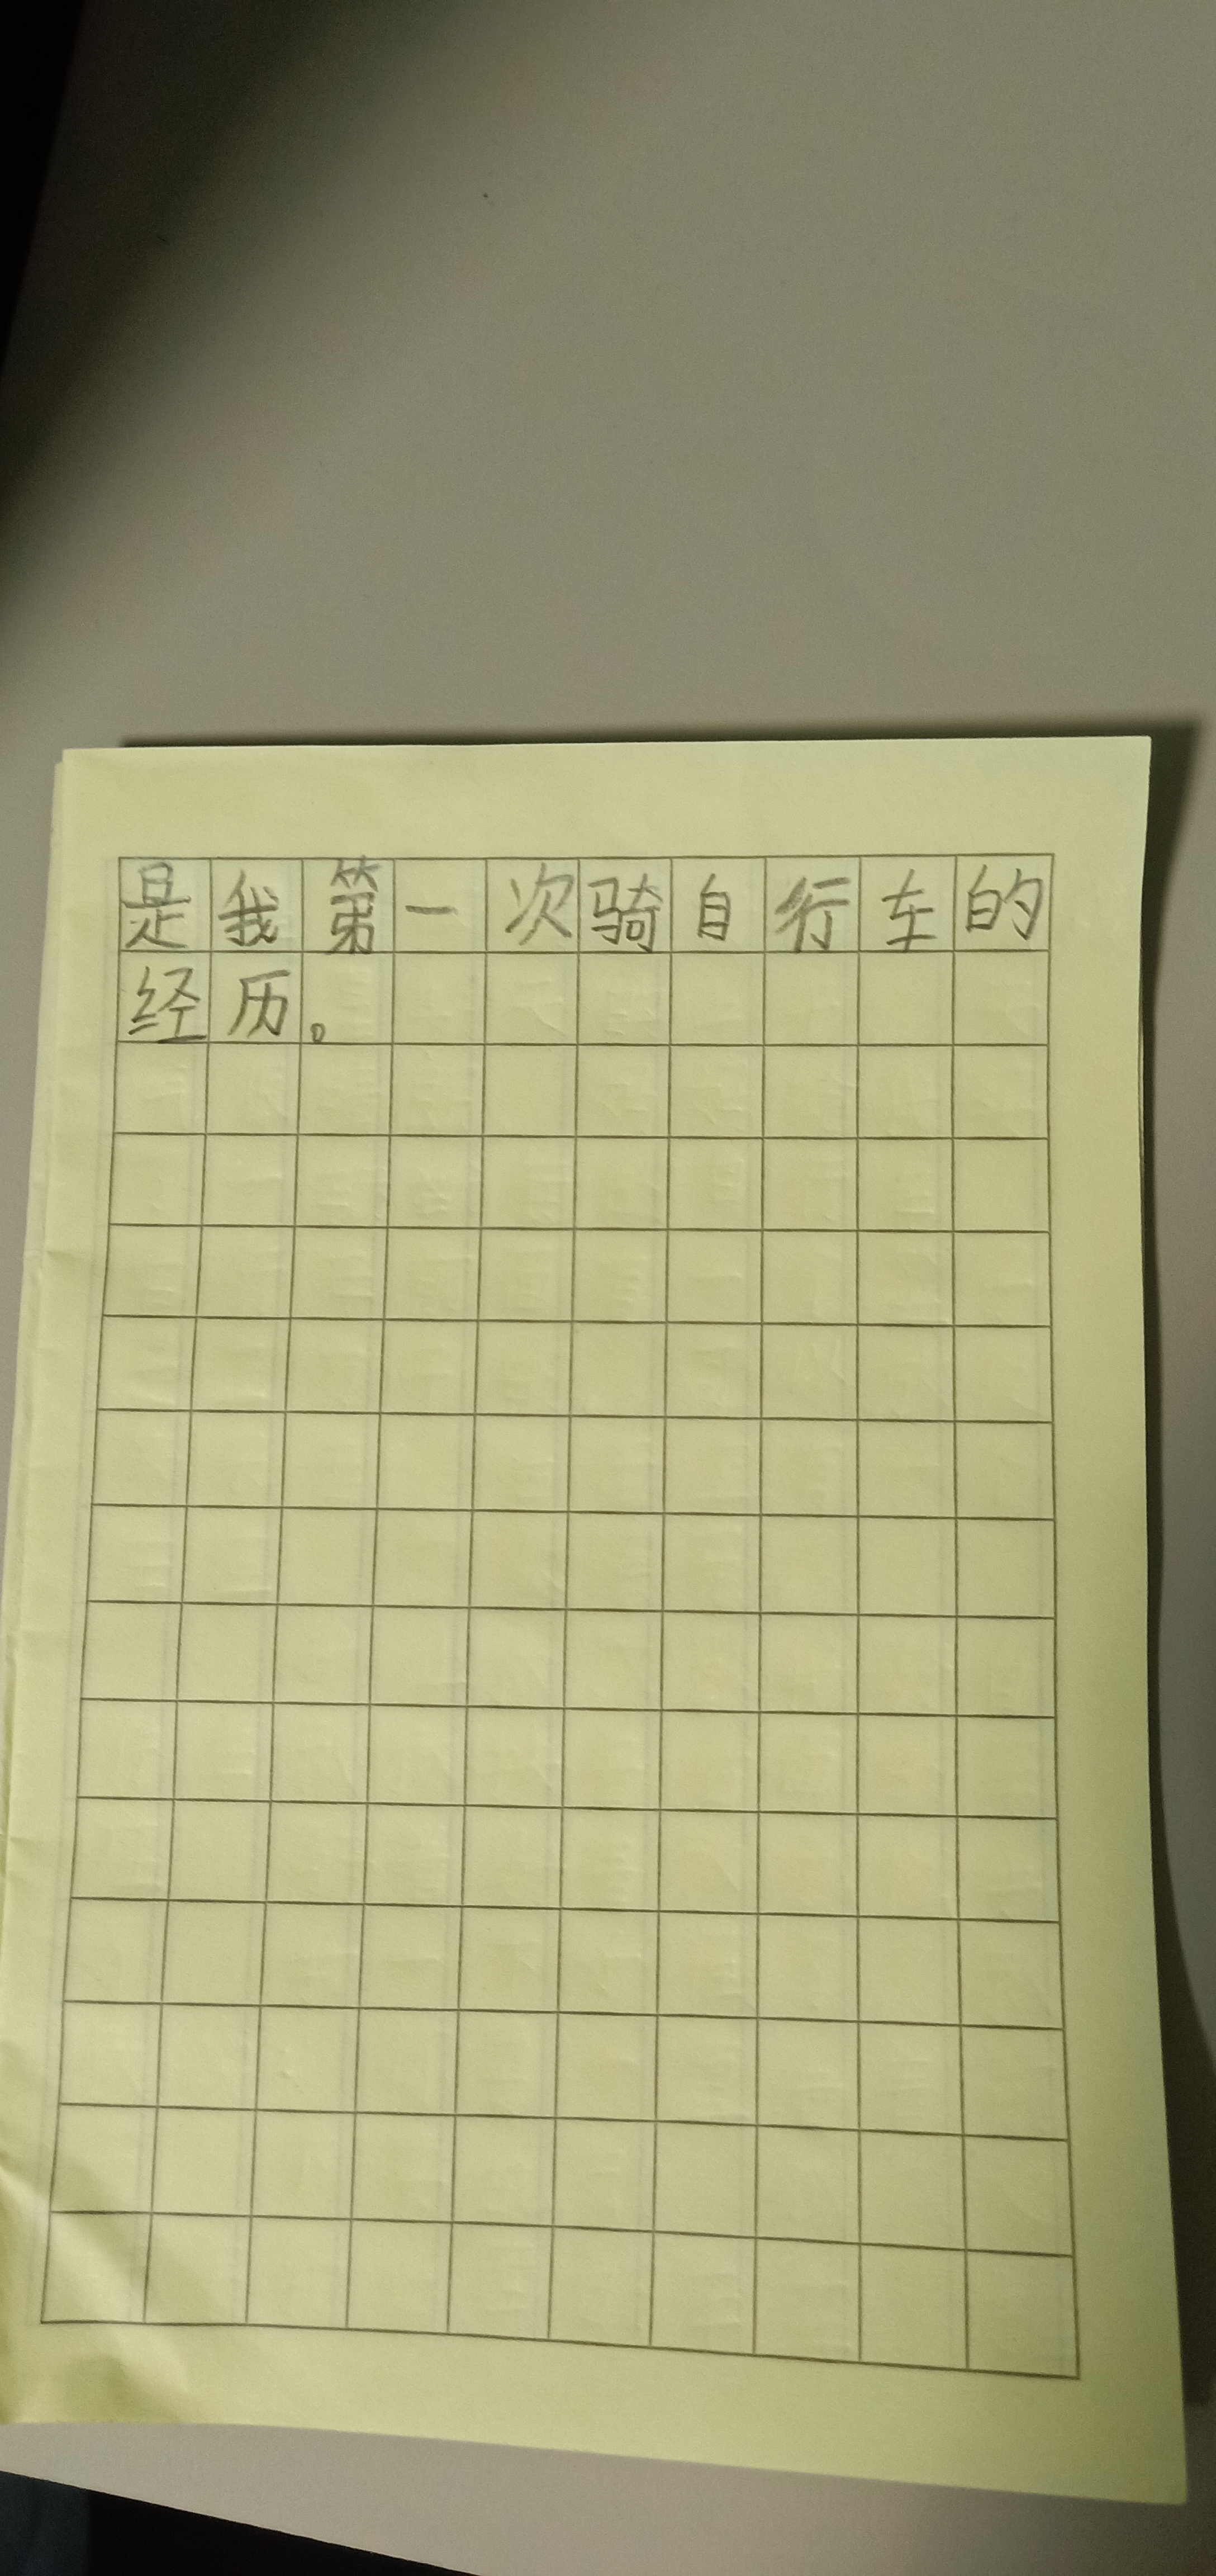 是我第一次骑自行车的
经历。